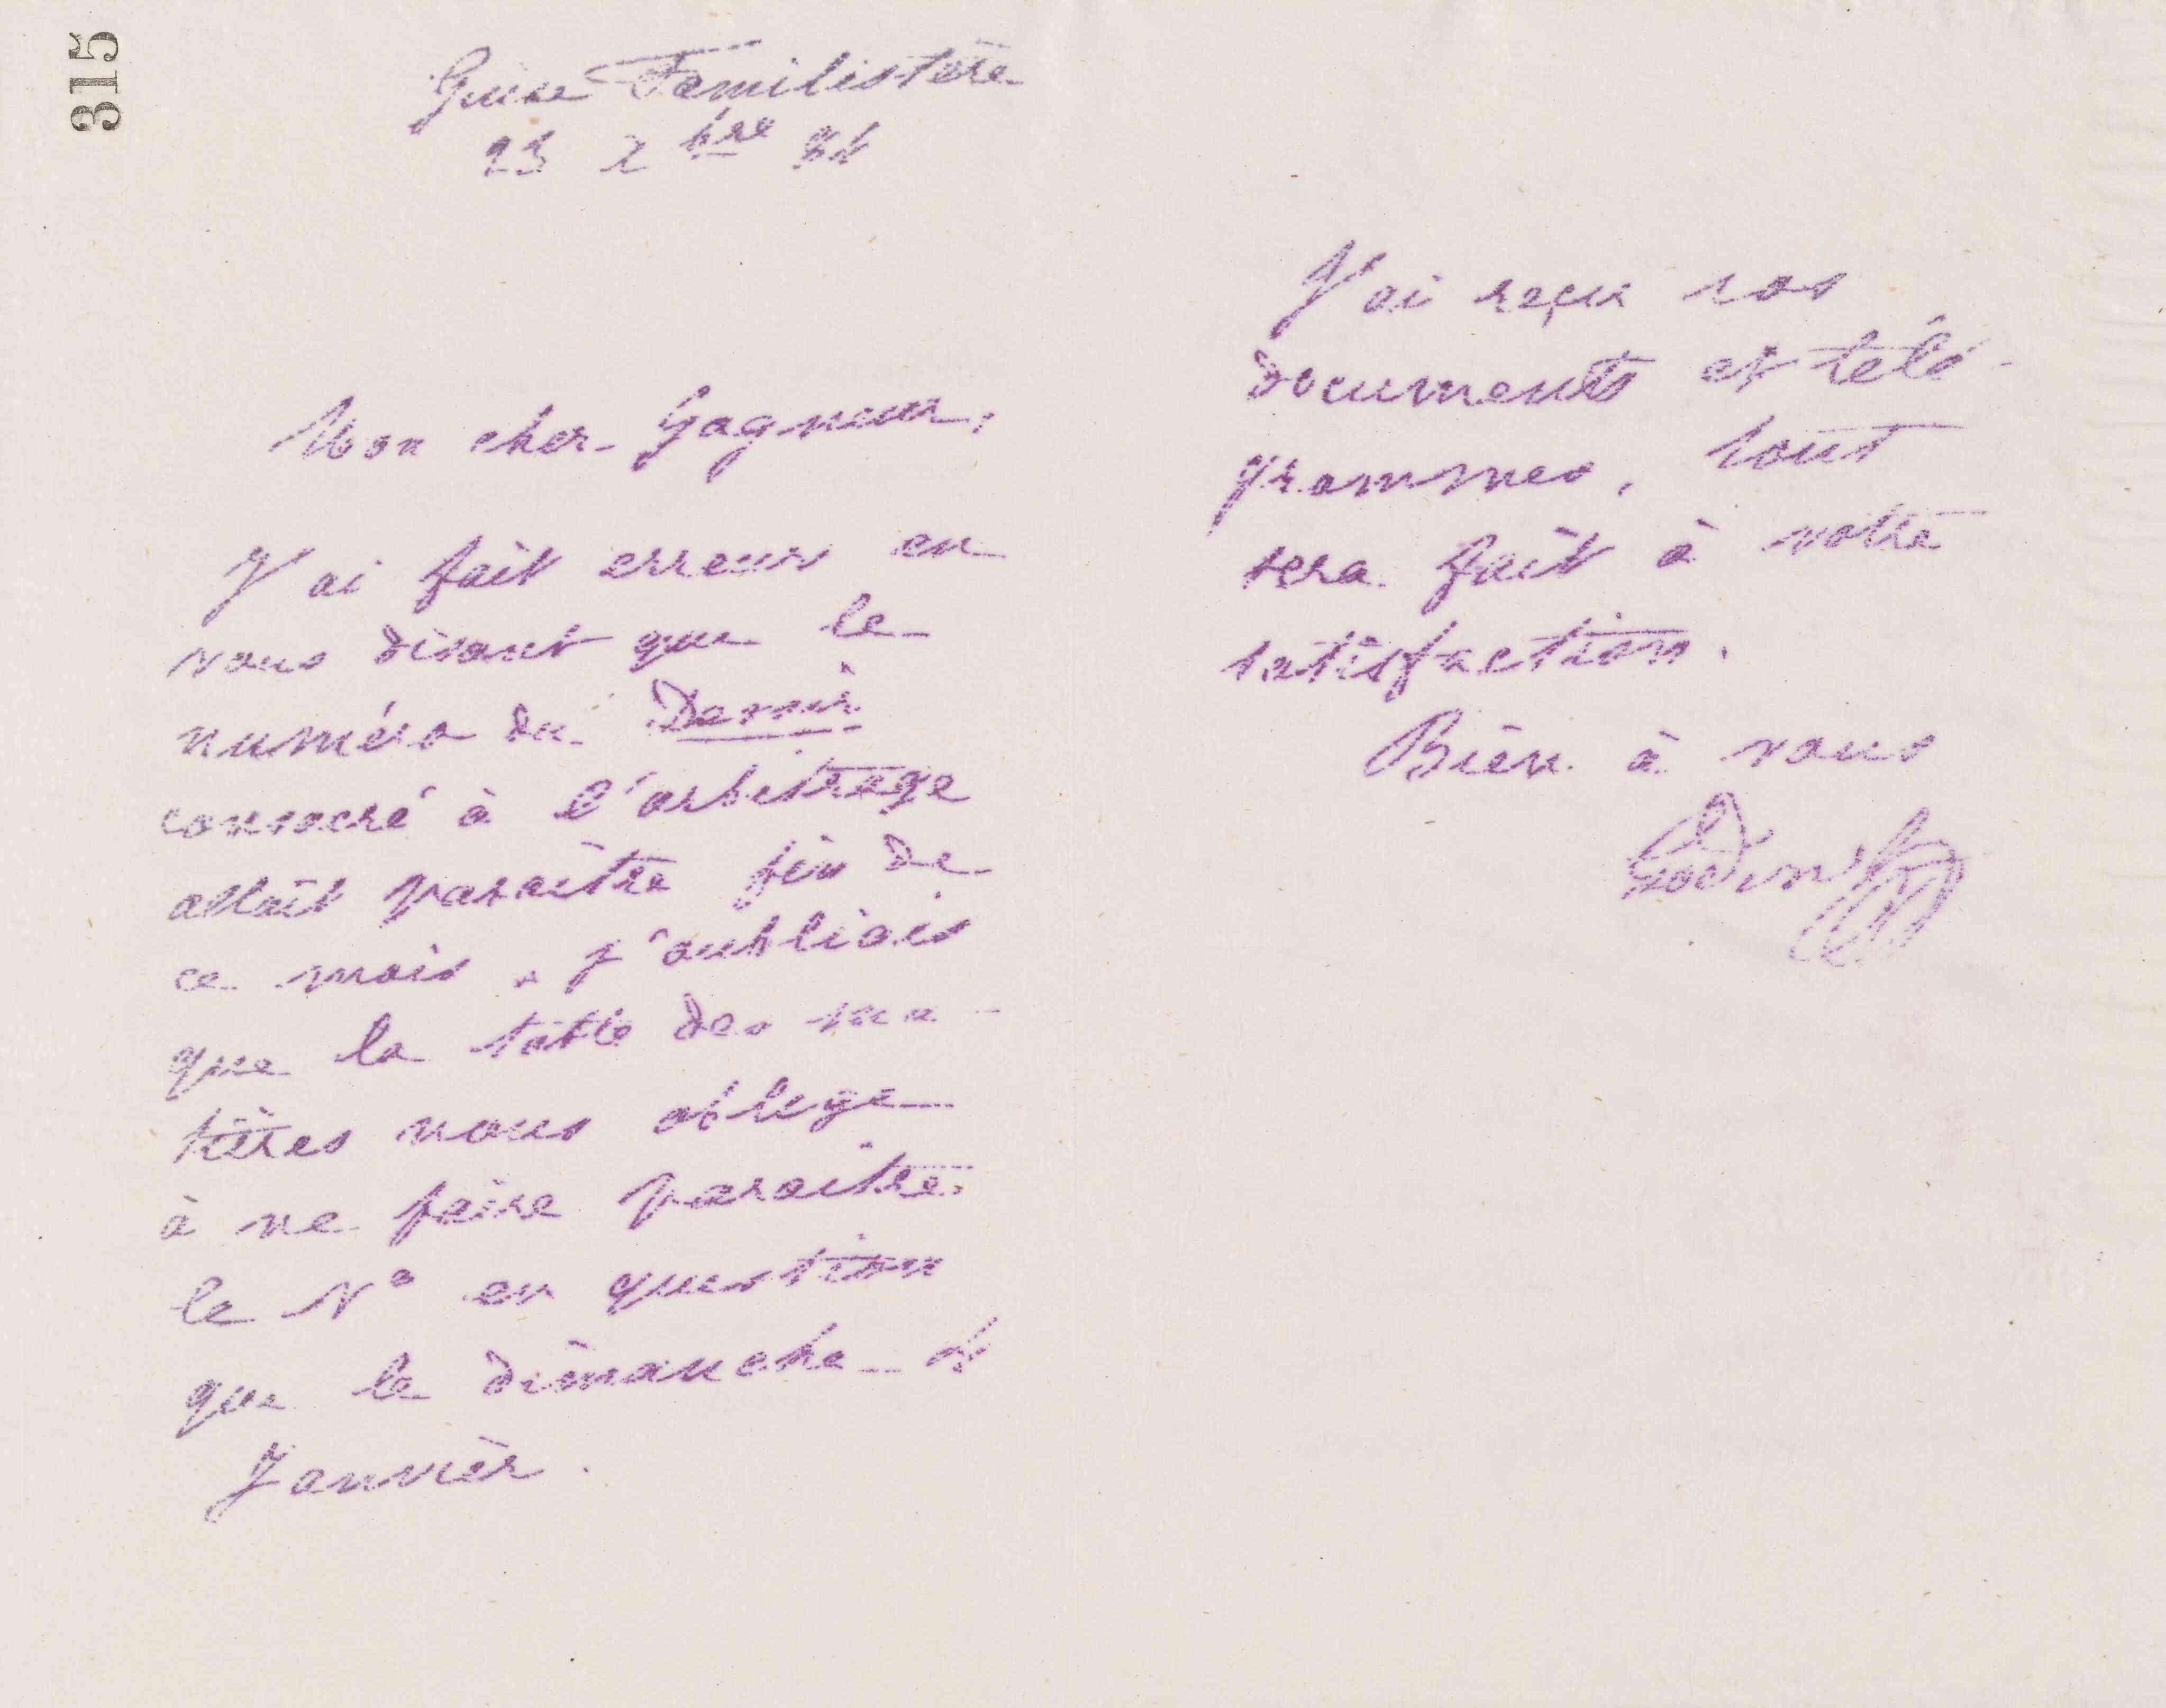 315
Guise Familistère
23 Xbre 84
Mon cher Gagneur,
J'ai fait erreur en
vous disant que le
numéro du Devoir
consacré à l'arbitrage
allait paraître fin de
ce mois. J'oubliais
que la table des ma-
tières nous oblige
à ne faire paraître
le N° en question
que le dimanche 4
Janvier.
J'ai reçu vos
documents et télé-
grammes, tout
sera fait à votre
satisfaction.
Bien à vous
Godin